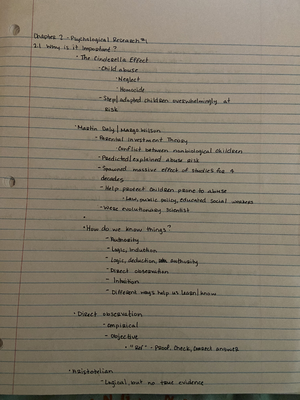 Chapter 2 - Psychological Research
2.1 Why is it important?
• The Cinderella Effect
• Child abuse
• Neglect
• Homicide
- Step/adopted children overwhelmingly at
risk
• Martin Daly / Margo Wilson
• Parental Investment Theory
• Conflict between nonbiological children
- Predicted/explained abuse risk
- Spawned massive effect of studies for 4
decades
- Help protect children prone to abuse
• Law, public policy, educated social workers
- Were evolutionary scientist
•
• How do we know things?
- Authority
- Logic, induction
- Logic, deduction, authority
- Direct observation
- Intuition
- Different ways help us learn/know
• Direct observation
- empirical
- Objective
• "Ref" - Proof, Check, Correct answer
• Aristotelian
- Logical, but no true evidence